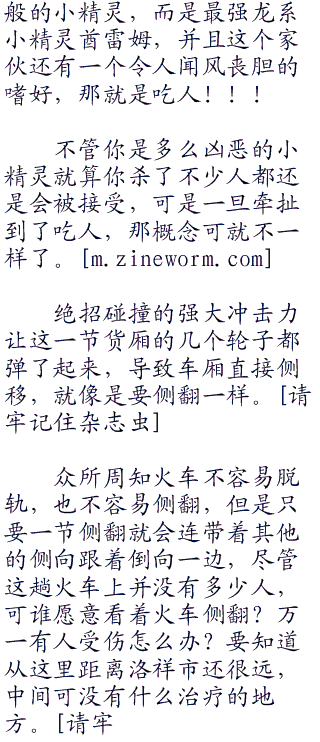 般的小精灵，而是最强龙系
小精灵酋雷姆，并且这个家
伙还有一个令人闻风丧胆的
嗜好，那就是吃人！！！
不管你是多么凶恶的小
精灵就算你杀了不少人都还
是会被接受，可是一旦牵扯
到了吃人，那概念可就不一
样了。[m.zineworm.com]
绝招碰撞的强大冲击力
让这一节货厢的几个轮子都
弹了起来，导致车厢直接侧
移，就像是要侧翻一样。[请
牢记住杂志虫]
众所周知火车不容易脱
轨，也不容易侧翻，但是只
要一节侧翻就会连带着其他
的侧向跟着倒向一边，尽管
这趟火车上并没有多少人，
可谁愿意看着火车侧翻？万
一有人受伤怎么办？要知道
从这里距离洛祥市还很远，
中间可没有什么治疗的地
方。[请牢